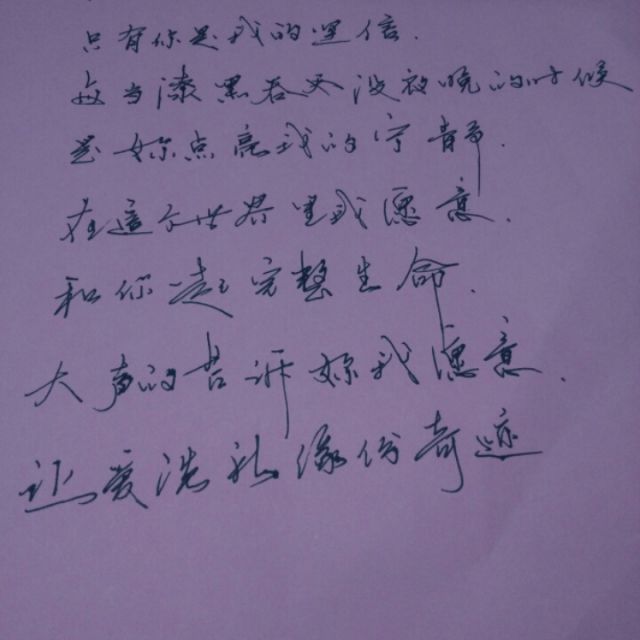 只有你是我的迷信.
每当漆黑吞没夜晚的时候
是妳点亮我的宁静.
在这个世界里我愿意.
和你一起完整生命.
大声的告诉妳我愿意.
让爱洗礼缘份奇迹